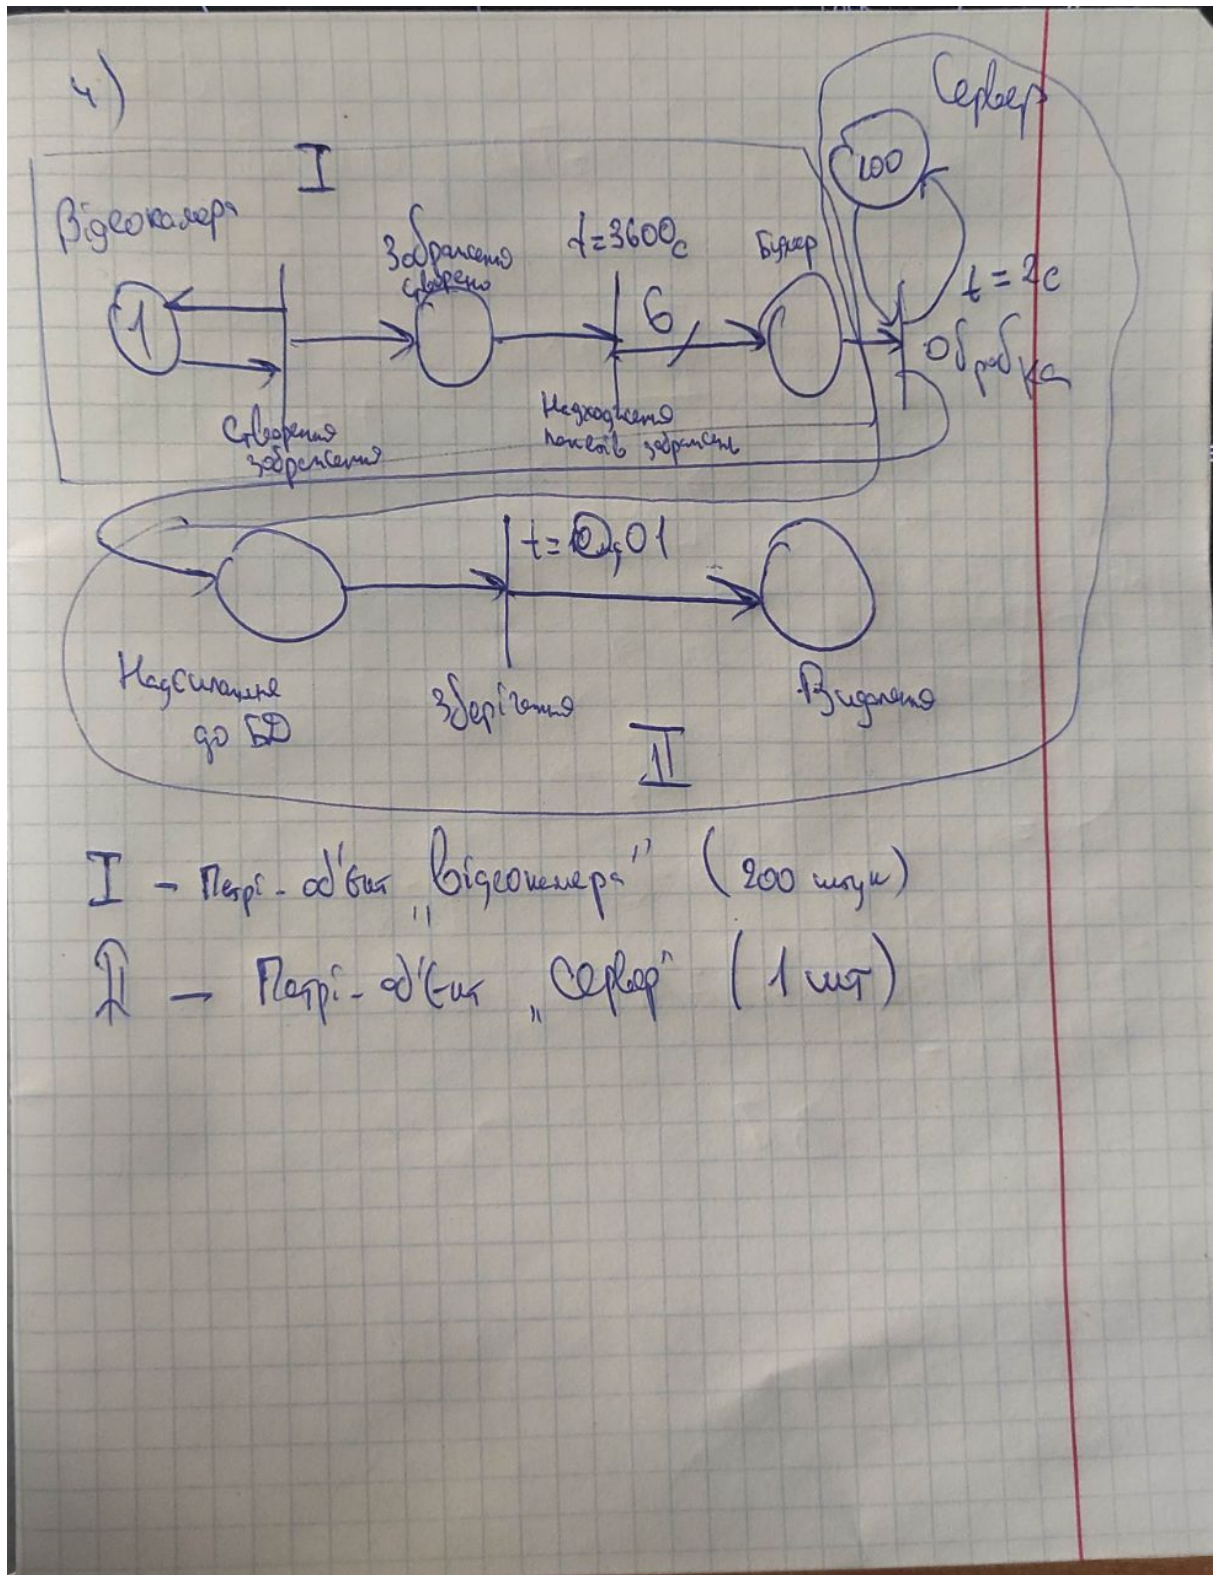 4)
Сервер
I
100
Відеокамера
Зображення
створено
t=3600с
Буфер
1
6
t = 2с
Обробка
Створення
зображення
Надходження
пакетів зображень
t=0,01
Надсилання
до БД
Зберігання
Видалення
II
I – Петрі-об'єкт „Відеокамера" (200 штук)
II – Петрі-об'єкт „Сервер" (1 шт)